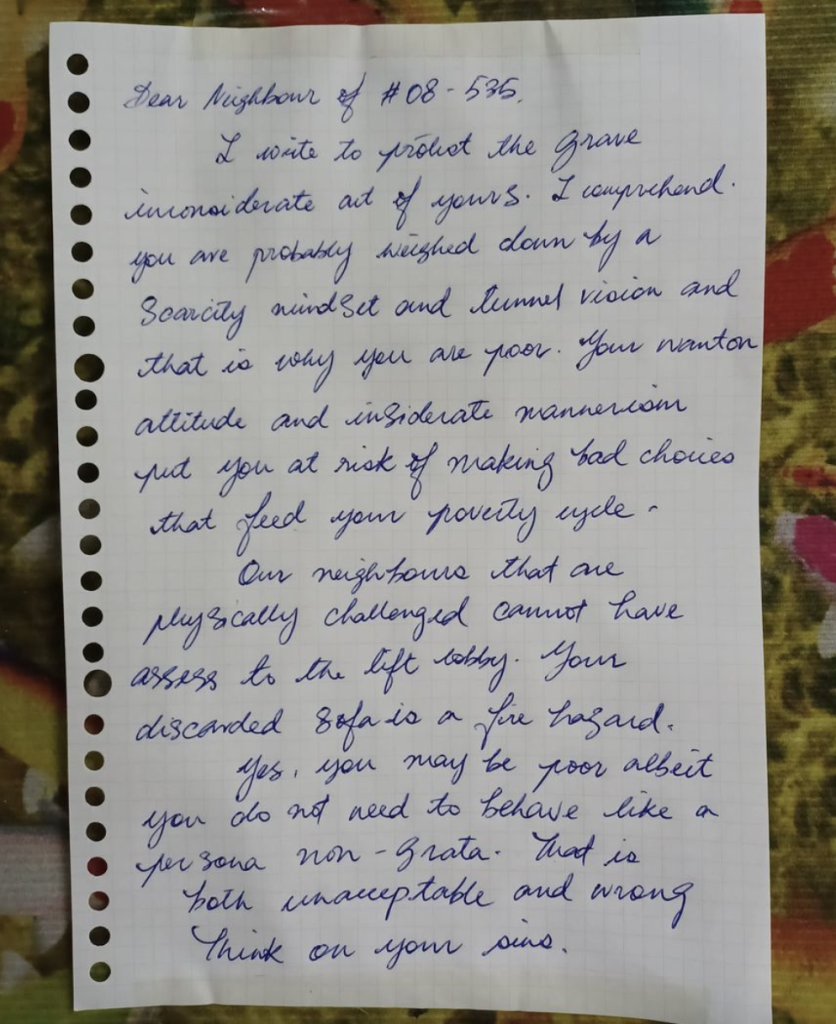 Dear Neighbour of #08-535,
I write to protest the grave
inconsiderate act of yours. I comprehend.
you are probably weighed down by a
scarcity mindset and tunnel vision and
that is why you are poor. Your wanton
attitude and insiderate mannerism
put you at risk of making bad choices
that feed your poverty cycle.
Our neighbours that are
physically challenged cannot have
assess to the lift lobby. Your
discarded sofa is a fire hazard.
Yes, you may be poor albeit
you do not need to behave like a
persona non-grata. That is
both unacceptable and wrong
Think on your sins.